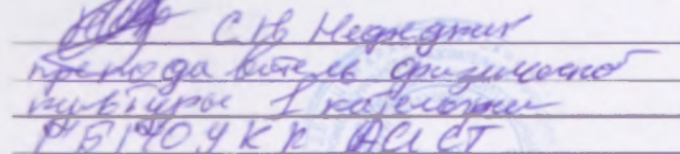 С.В. Нефедник
преподаватель физической
культуры 1 категории
ГБПОУ КК АСИСТ